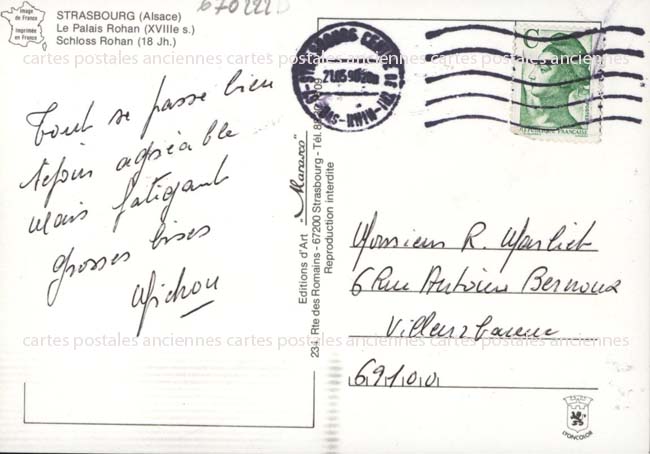 670222D
Image
de France
Imprimée
en France
STRASBOURG (Alsace)
Le Palais Rohan (XVIIIe s.)
Schloss Rohan (18 Jh.)
Tout se passe bien
séjour agréable
mais fatigant
grosses bises
Michou
Editions d'Art - "Marasco"
234, Rte des Romains - 67200 Strasbourg - Tél. 88
Reproduction interdite
STRASBOURG
67 BAS-RHIN
C
REPUBLIQUE FRANCAISE
Monsieur R. Marliet
6 Rue Antoine Bernoux
Villeurbanne
69100
LYONCOLOR
cartes postales anciennes cartes postales anciennes cartes postales anciennes
cartes postales anciennes cartes postales anciennes cartes postales anciennes